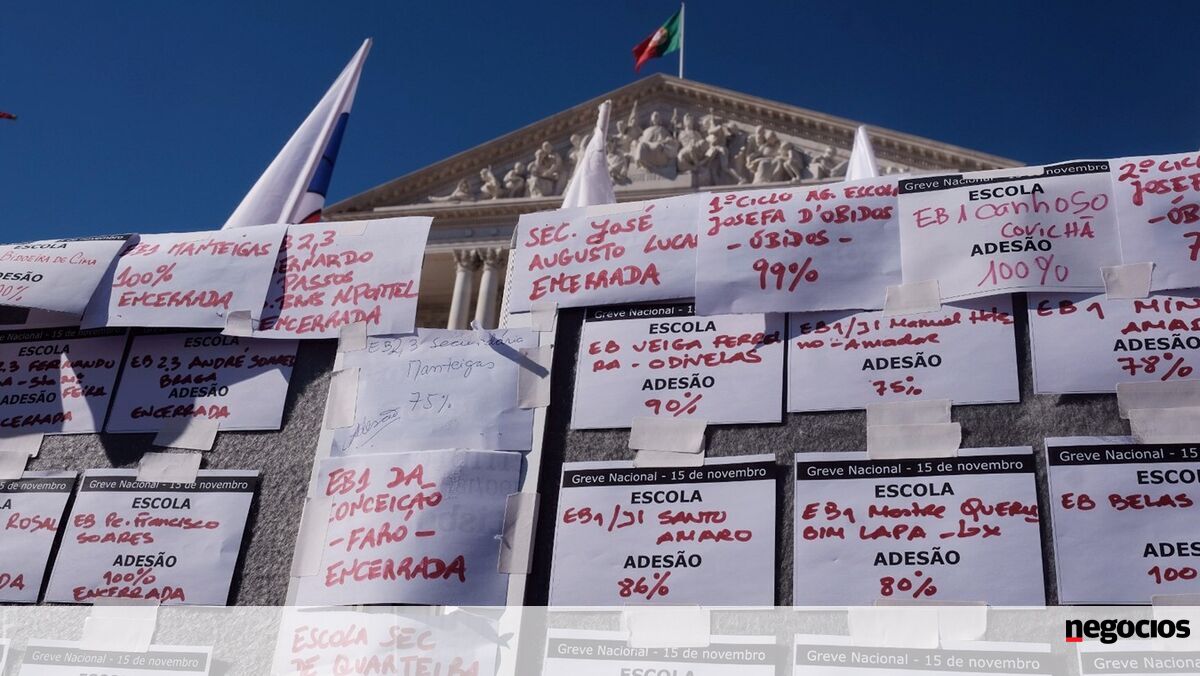 ESCOLA
BIDOEIRA DE CIMA
ADESÃO
EB1 MANTEIGAS
100%
ENCERRADA
EB 2,3
BERNARDO
PASSOS
S.BRÁS ALPORTEL
ENCERRADA
SEC. JOSÉ
AUGUSTO LUCAS
ENCERRADA
1º CICLO AG. ESCOLAS
JOSEFA D'OBIDOS
- ÓBIDOS -
99%
Greve Nacional - 15 de novembro
ESCOLA
EB1 Canhoso
COVILHÃ
ADESÃO
100%
2º CICLO
JOSEFA
- ÓBI
ESCOLA
EB 2,3 FERNANDO
ADESÃO
ENCERRADA
ESCOLA
EB 2,3 ANDRÉ SOARES
BRAGA
ADESÃO
ENCERRADA
EB2,3 Secundária
Manteigas
75%
Adesão
Greve Nacional - 15 de novembro
ESCOLA
EB VEIGA FERREI
RA - ODIVELAS
ADESÃO
90%
EB1/JI Manuel
no - Amadora
ADESÃO
75%
EB 1 MINA
AMADO
ADESÃO
78%
15 de novembro
ESCOLA
ROSAL
ADESÃO
Greve Nacional - 15 de novembro
ESCOLA
EB Pe. Francisco
SOARES
ADESÃO
100%
ENCERRADA
EB1 DA
CONCEIÇÃO
- FARO -
ENCERRADA
Greve Nacional - 15 de novembro
ESCOLA
EB1/JI SANTO
AMARO
ADESÃO
86%
Greve Nacional - 15 de novembro
ESCOLA
EB1 Mestre Queru
BIM LAPA - LX
ADESÃO
80%
Greve Nacional - 15 de nove
ESCO
EB BELAS
ADES
100
Greve Nacional - 15 de novembro
ESCOLA SEC
DE QUARTEIRA
Greve Nacional - 15 de novembro
ESCOLA
Greve Nacional - 15 de novembro
Greve Nacional - 15 de nov
negocios